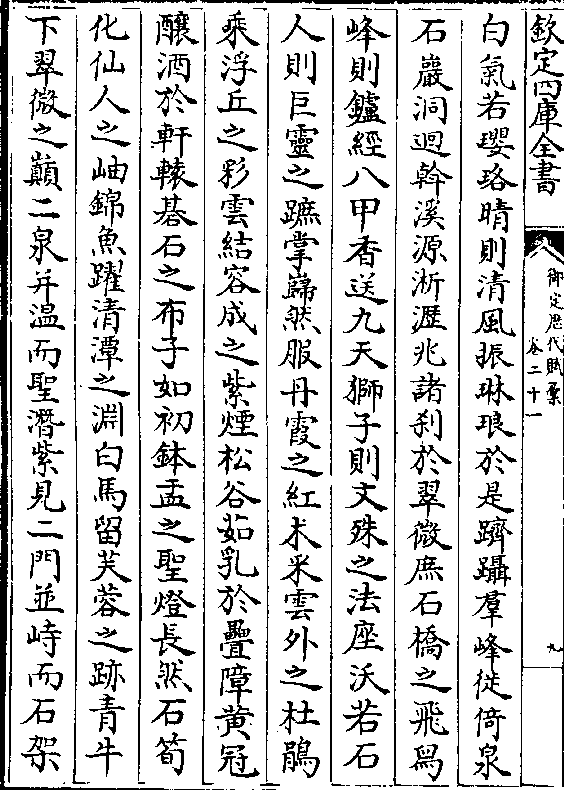 欽定四庫全書
御定歷代賦彙
卷二十一
九
白氣若瓔珞晴則清風振琳琅於是躋躡羣峰徙倚泉
石巖洞迴斡溪源淅瀝兆諸刹於翠微庶石橋之飛舄
峰則鑪經八甲香送九天獅子則文殊之法座沃若石
人則巨靈之蹠掌巋然服丹霞之紅朮采雲外之杜鵑
乘浮丘之彩雲結容成之紫煙松谷茹乳於疊障黄冠
釀酒於軒轅碁石之布子如初鉢盂之聖燈長然石筍
化仙人之岫錦魚躍清潭之淵白馬留芙蓉之跡青牛
下翠微之巔二泉并温而聖濳紫見二門並峙而石架